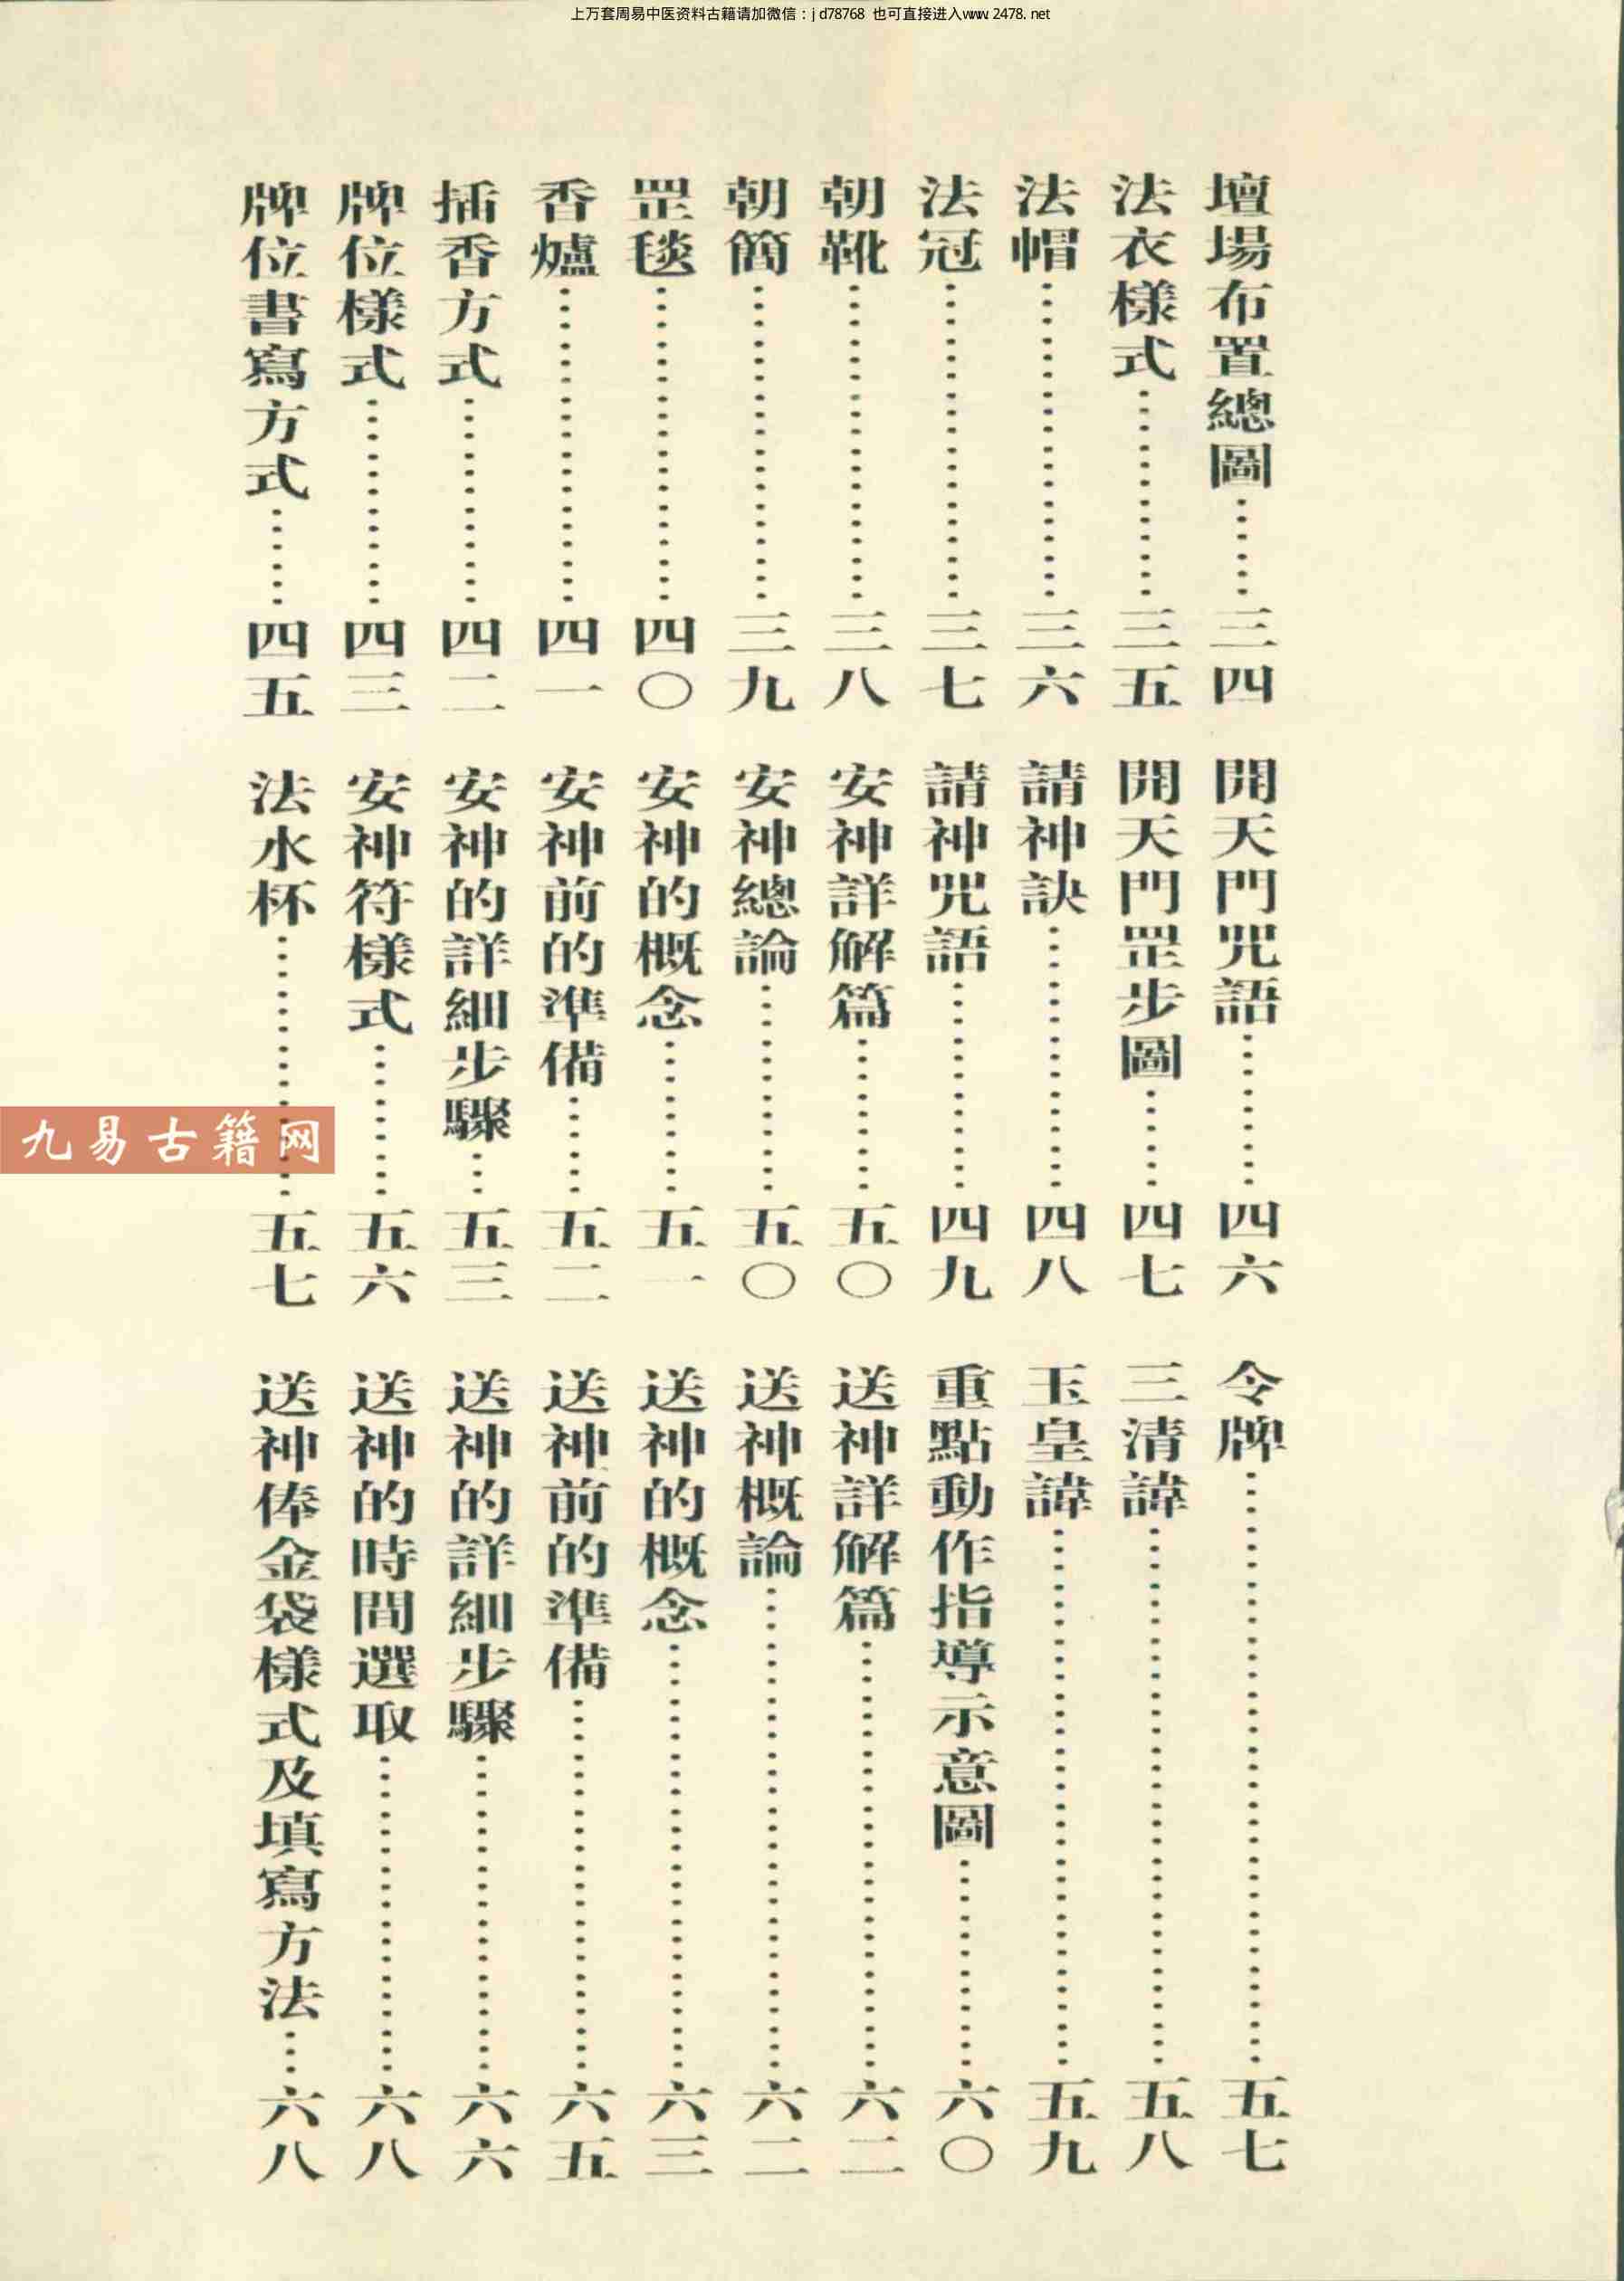 上万套周易中医资料古籍请加微信：jd78768 也可直接进入www.2478.net
壇場布置總圖……三四
法衣樣式……三五
法帽……三六
法冠……三七
朝靴……三八
朝簡……三九
罡毯……四〇
香爐……四一
插香方式……四二
牌位樣式……四三
牌位書寫方式……四五
開天門咒語……四六
開天門罡步圖……四七
請神訣……四八
請神咒語……四九
安神詳解篇……五〇
安神總論……五〇
安神的概念……五一
安神前的準備……五二
安神的詳細步驟……五三
安神符樣式……五六
法水杯……五七
令牌……五七
三清諱……五八
玉皇諱……五九
重點動作指導示意圖……六〇
送神詳解篇……六二
送神概論……六二
送神的概念……六三
送神前的準備……六五
送神的詳細步驟……六六
送神的時間選取……六八
送神俸金袋樣式及填寫方法……六八
九易古籍网